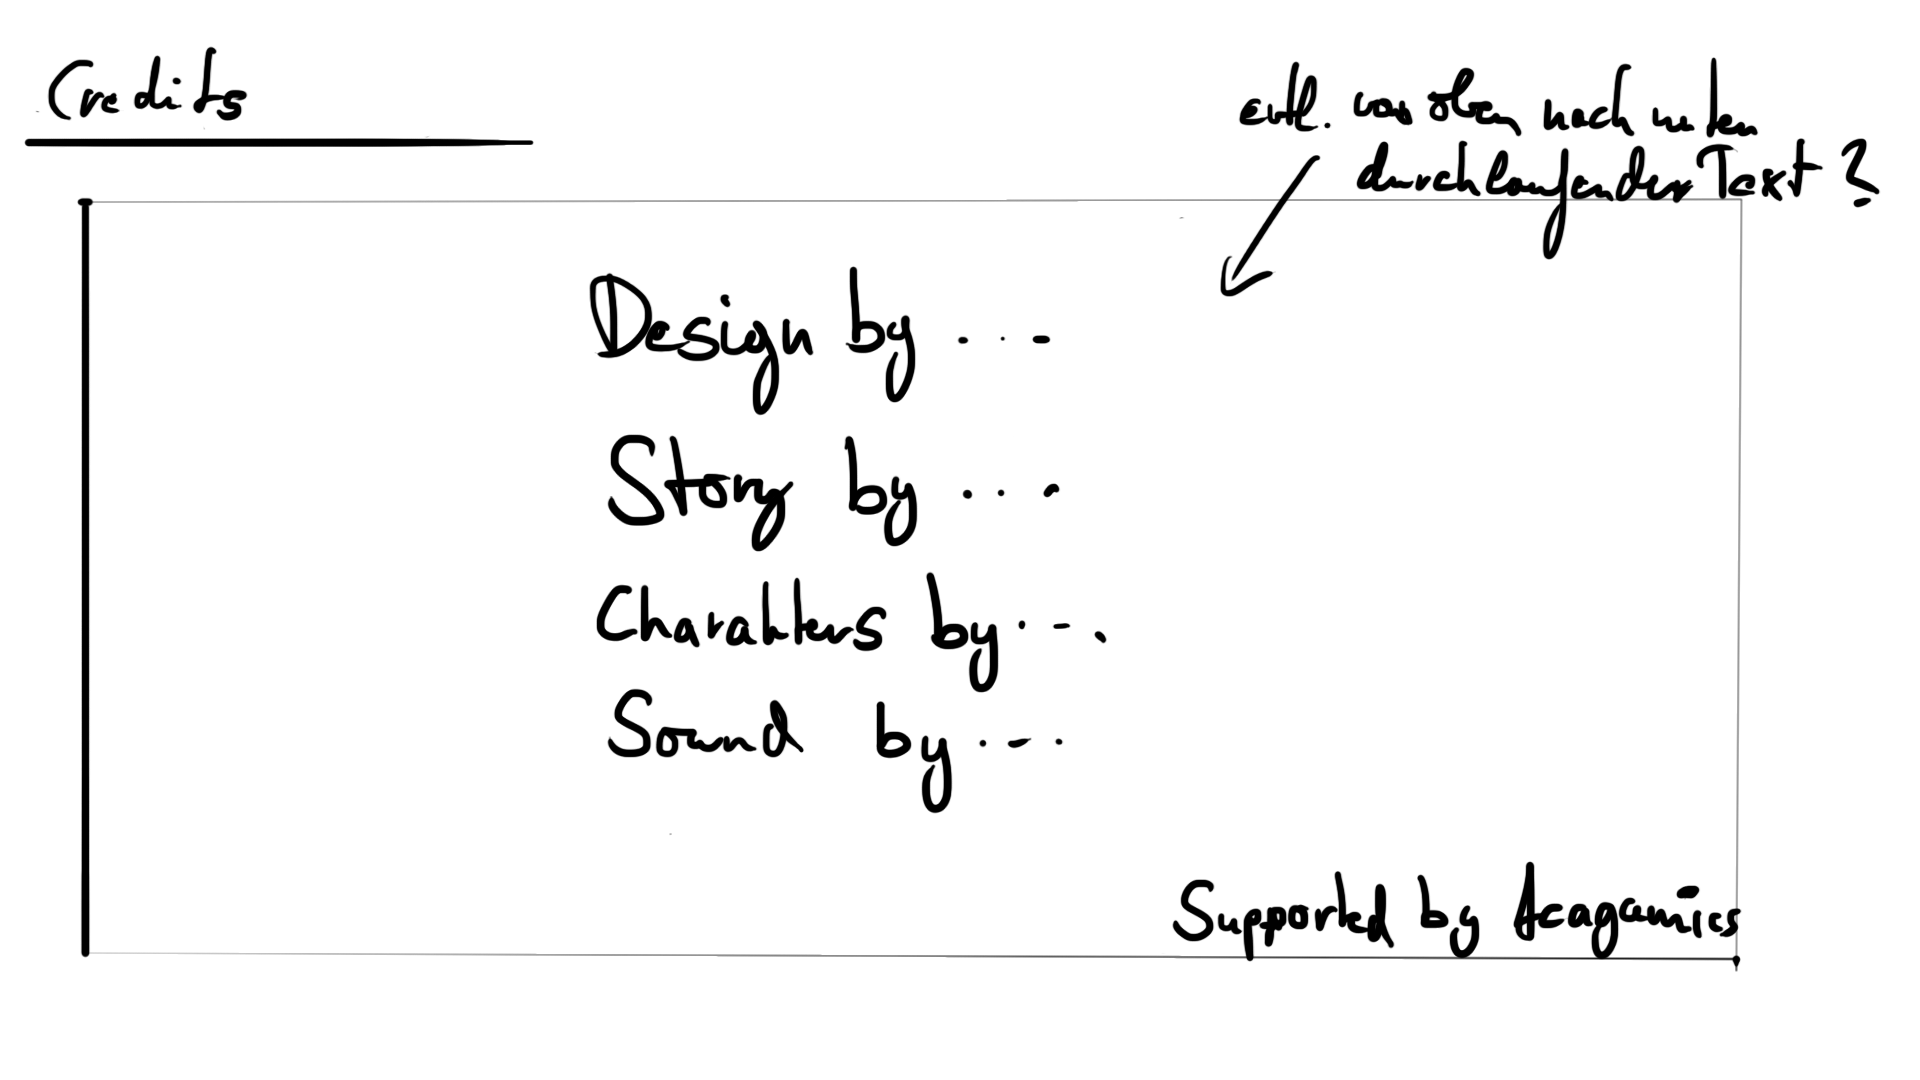 Credits
evtl. von oben nach unten
durchlaufender Text?
Design by ...
Story by ...
Charakters by ...
Sound by ...
Supported by Acagamics